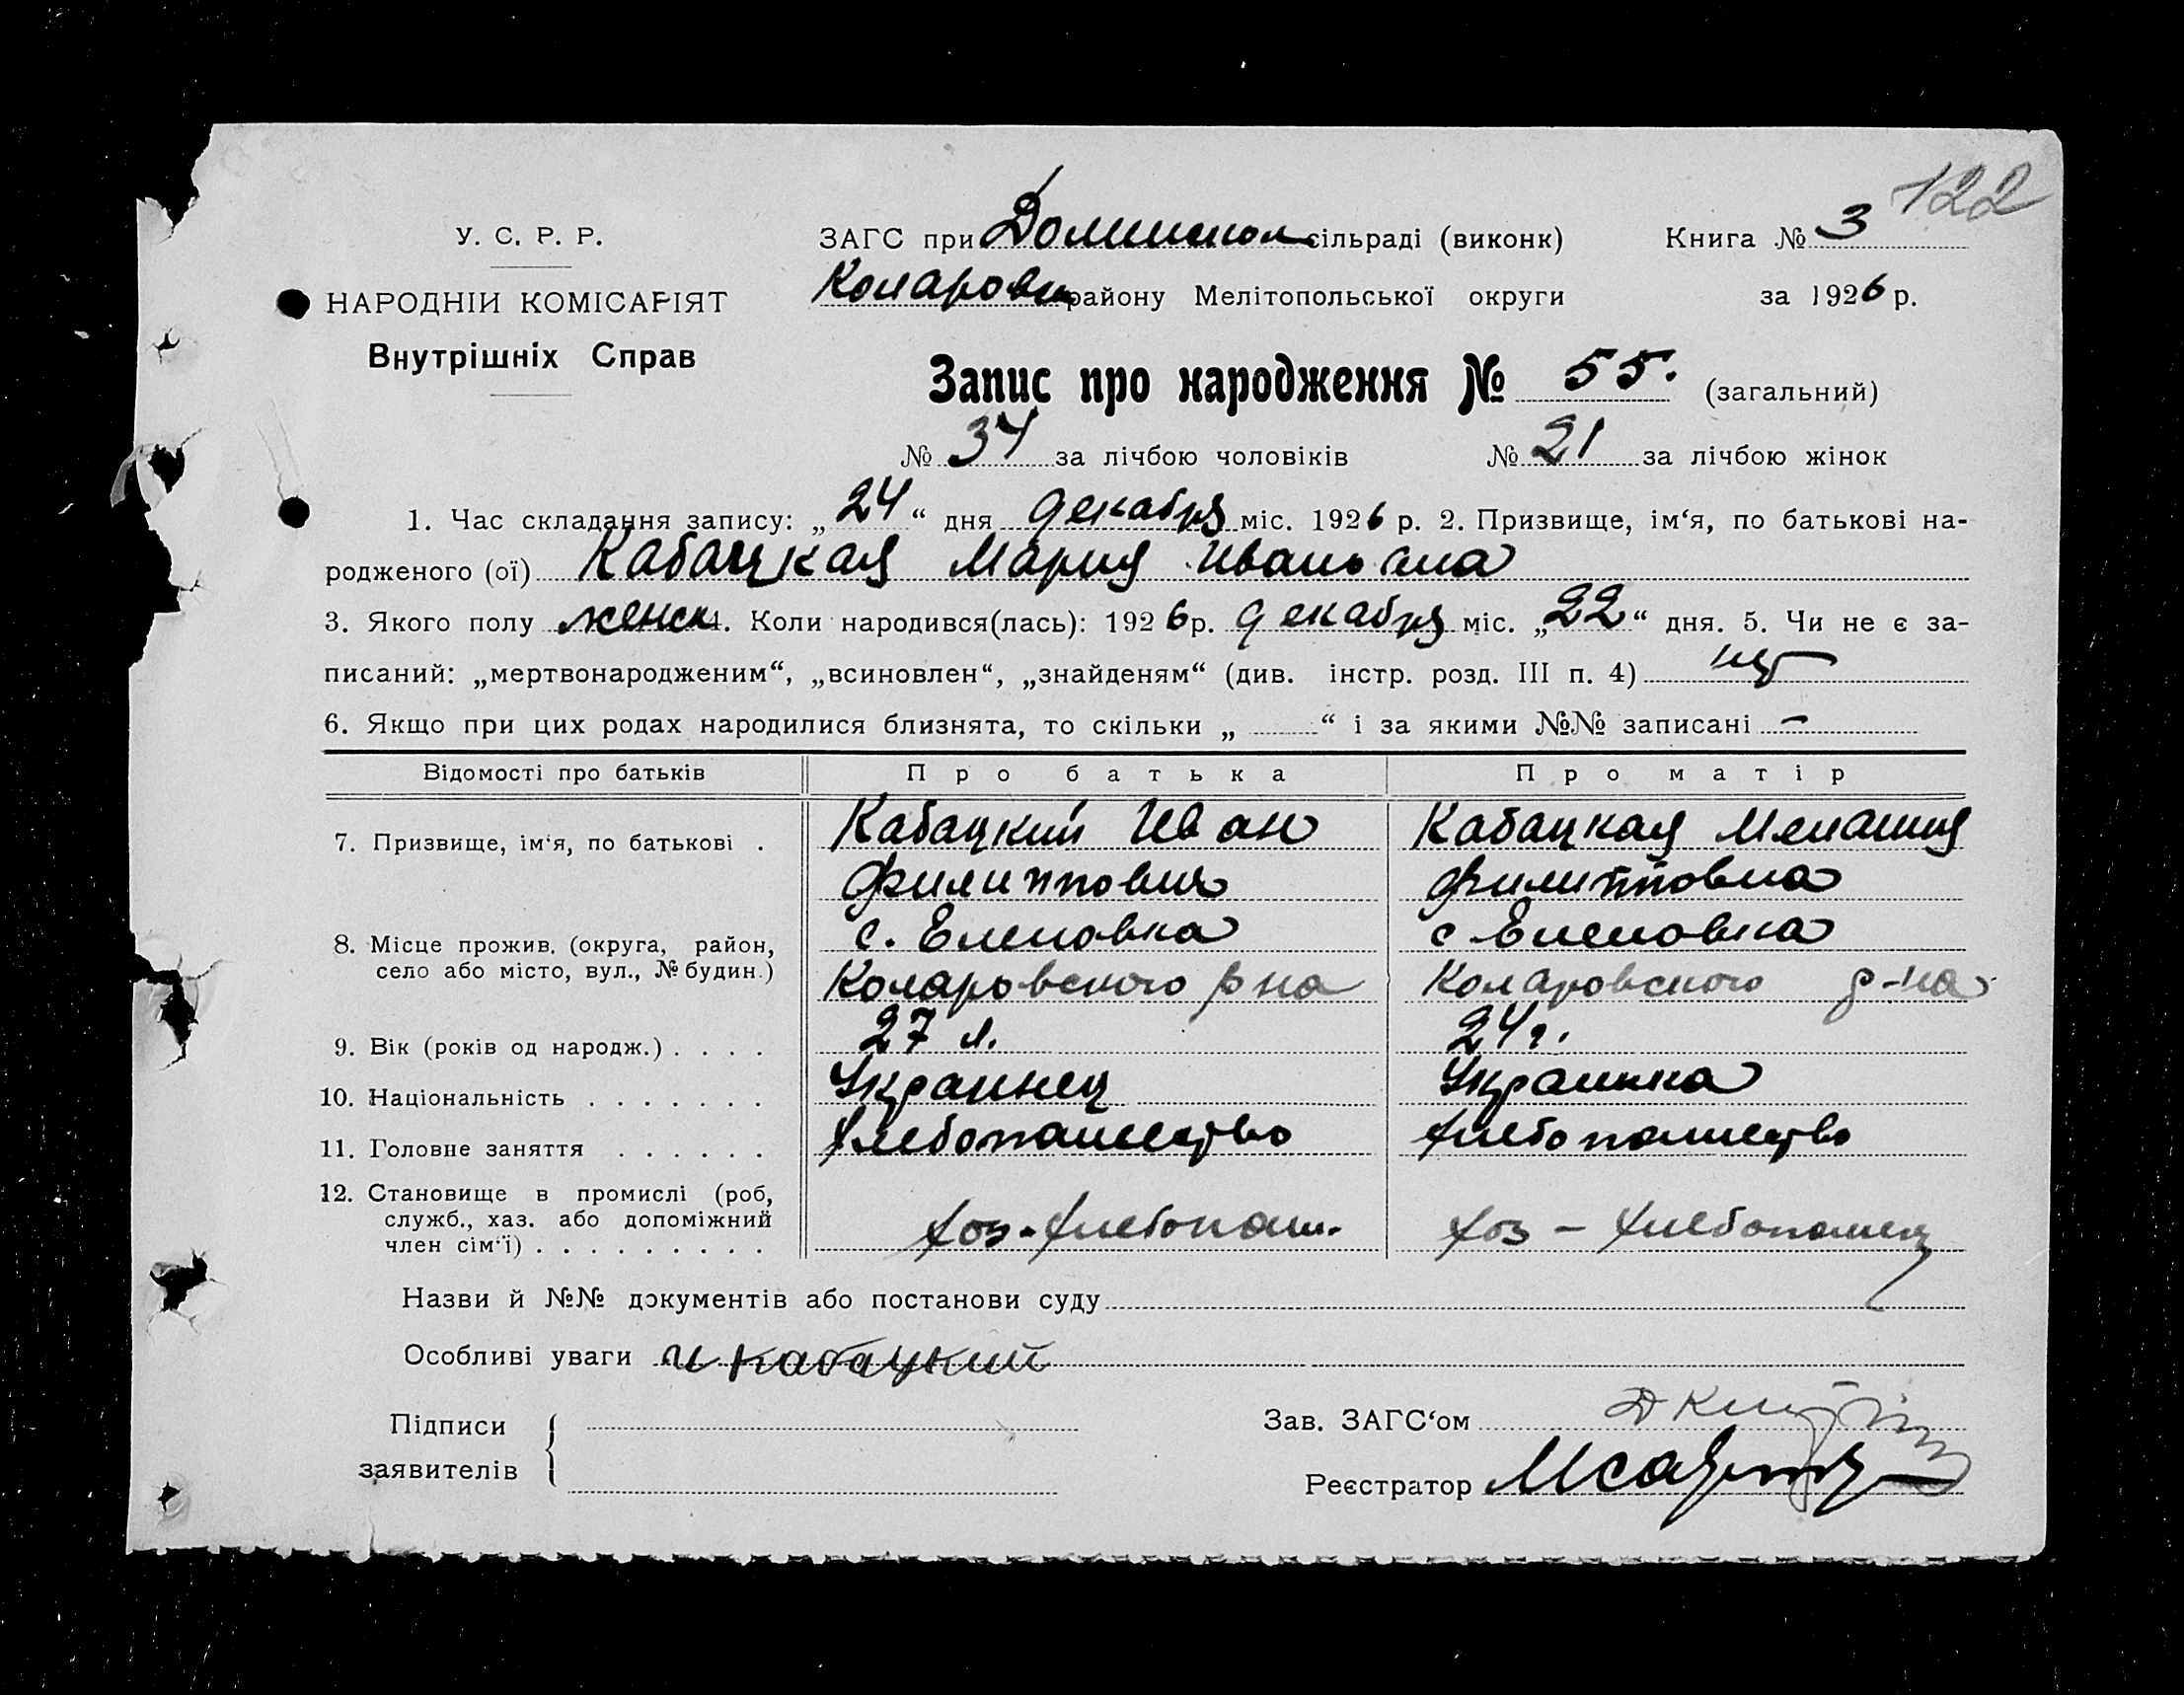 122
У. С. Р. Р.
НАРОДНІЙ КОМІСАРІЯТ
Внутрішніх Справ
ЗАГС при сільраді (виконк)
Коларовск району Мелітопольської округи
Книга № 3
за 1926 р.
Запис про народження № 55. (загальний)
№ 34 за лічбою чоловіків № 21 за лічбою жінок
1. Час складання запису: „24“ дня декабря міс. 1926 р. 2. Призвище, ім‘я, по батькові на-
родженого (ої) Кабацкая Мария Ивановна
3. Якого полу женск 4. Коли народився(лась): 1926 р. декабря міс. „22“ дня. 5. Чи не є за-
писаний: „мертвонародженим“, „всиновлен“, „знайденям“ (див. інстр. розд. III п. 4) нет
6. Якщо при цих родах народилися близнята, то скільки „ “ і за якими №№ записані —
Відомості про батьків Про батька Про матір
7. Призвище, ім‘я, по батькові . Кабацкий Иван Кабацкая Мелания
Филиппович Филипповна
8. Місце прожив. (округа, район, с. Еленовка с Еленовка
село або місто, вул., № будин.) Коларовского рна Коларовского р-на
9. Вік (років од народж.) . . . . 27 л. 24 г.
10. Національність . . . . . . . Украинец Украинка
11. Головне заняття . . . . . . Хлебопашество Хлебопашество
12. Становище в промислі (роб,
служб., хаз. або допоміжний хоз-хлебопаш. хоз - хлебопашец
член сім‘ї) . . . . . . . . .
Назви й №№ документів або постанови суду
Особливі уваги И Кабацкий
Підписи
заявителів
Зав. ЗАГС‘ом
Реєстратор